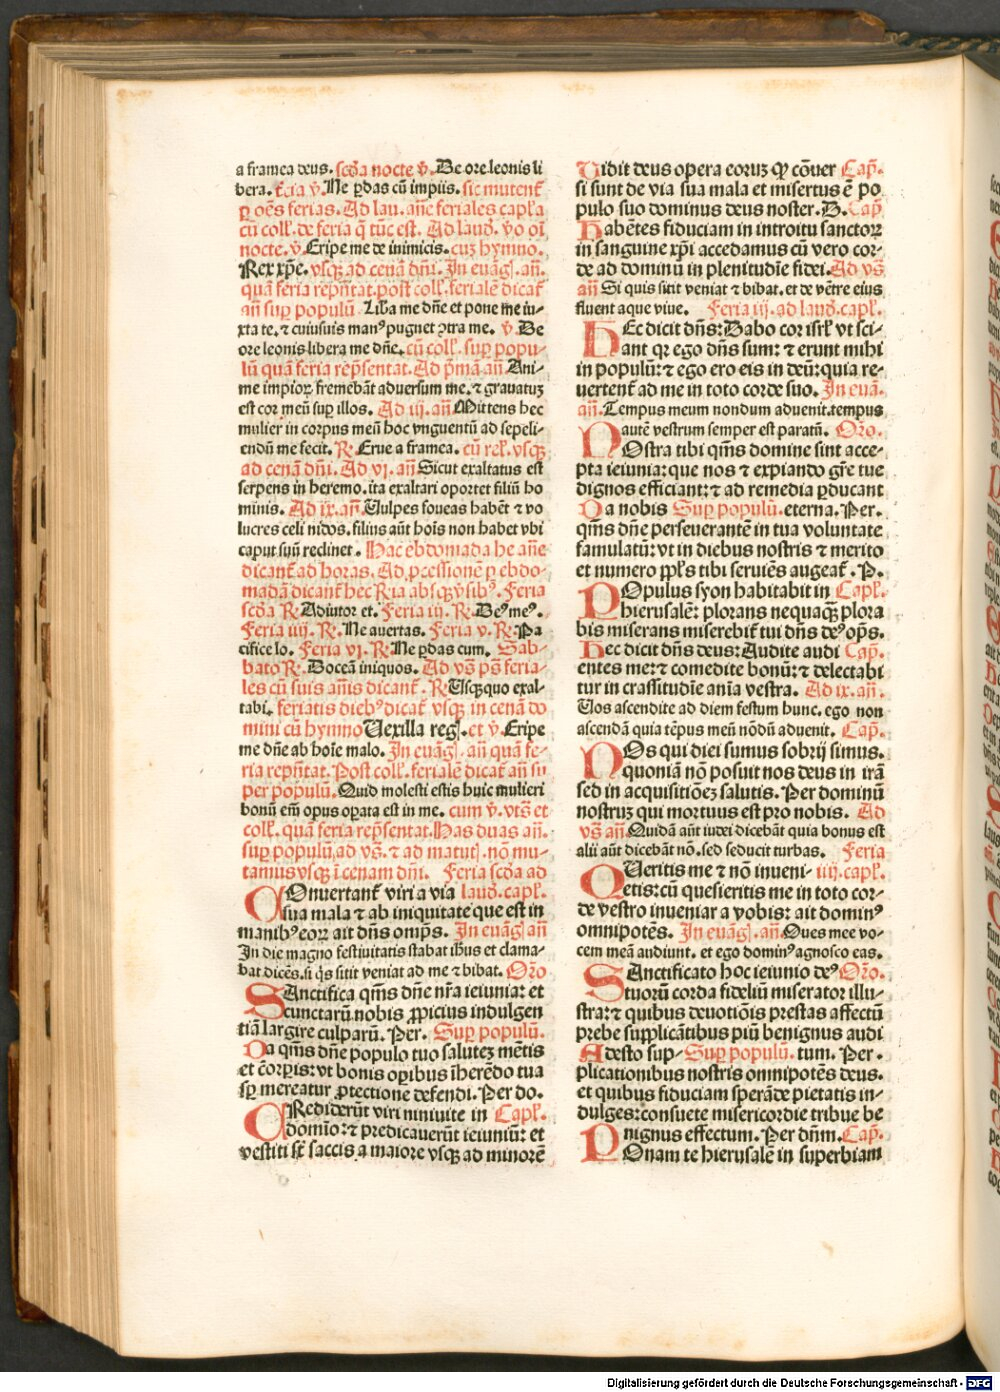 a framea deus. scďa nocte v̄. De ore leonis li
bera. t̄cia v̄. Ne ꝑdas cū impiis. sic mutent̄
ꝑ oēs ferias. Ad lau. añe feriales capl'a
cū coll'. de feria q̄ tūc est. Ad laud. v̄o oī
nocte. v̄. Eripe me de inimicis. cuz hymno.
Rex xp̄e. vsqꝫ ad cenā dñi. In euāḡ. añ.
quā feria rep̄ñtat. post coll'. feriale dicat̄
añ suꝑ populū Liba me dñe et pone me iu-
xta te. ⁊ cuiusuis manꝰ pugnet ↄtra me. v̄. De
ore leonis libera me dñe. cū coll'. suꝑ popu-
lū quā feria rep̄sentat. Ad p̄mā añ Ani-
me impioꝝ fremebāt aduersum me. ⁊ grauatuꝫ
est cor meū suꝑ illos. Ad iij. añ Mittens hec
mulier in corpus meū hoc vnguentū ad sepeli-
endū me fecit. ℞. Erue a framea. cū rel'. vsqꝫ
ad cenā dñi. Ad vj. añ Sicut exaltatus est
serpens in heremo. ita exaltari oportet filiū ho
minis. Ad ix. añ Uulpes foueas habēt ⁊ vo
lucres celi nidos. filius aūt hoīs non habet vbi
caput suū reclinet. Hac ebdomada he añe
dicant̄ ad horas. Ad ꝓcessionē ꝑ ebdo-
madā dicant̄ hec ℞ia absqꝫ v̄sibꝰ. Feria
scďa ℞. Adiutor et. Feria iij. ℞. Deꝰ meꝰ.
Feria iiij. ℞. Ne auertas. Feria v. ℞. Pa
cifice lo. Feria vj. ℞. Ne ꝑdas cum. Sab-
bato ℞. Doceā iniquos. Ad vs̄ ps̄ feria-
les cū suis añis dicant̄. ℞. Usqꝫquo exal-
tabi. feriatis diebꝰ dicat̄ vsqꝫ in cenā do
mini cū hymno Uexilla reḡ. et v̄. Eripe
me dñe ab hoīe malo. In euāḡ. añ quā fe-
ria rep̄ñtat. Post coll'. feriale dicat̄ añ su
per populū. Quid molesti estis huic mulieri
bonū em̄ opus oꝑata est in me. cum v̄. vts̄ et
coll'. quā feria rep̄sentat. Has duas añ.
suꝑ populū ad vs̄. ⁊ ad matut̄. nō mu-
tamus vsqꝫ ī cenam dñi. Feria scďa ad
COnuertant̄ viri a via laud. capl'.
sua mala ⁊ ab iniquitate que est in
manibꝰ eoꝝ ait dñs omp̄s. In euāḡ. añ
In die magno festiuitatis stabat ih̄us et clama-
bat dicēs. si q̄s sitit veniat ad me ⁊ bibat. Oro
SAnctifica q̄ms dñe nr̄a ieiunia: et
cunctarū nobis ꝓpicius indulgen
tiā largire culparū. Per. Suꝑ populū.
Da q̄ms dñe populo tuo saluteꝫ mētis
et corꝑis: vt bonis oꝑibus īherēdo tua
sꝑ mereatur ꝓtectione defendi. Per do.
CRediderūt viri niniuite in Capl'.
domīo: ⁊ predicauerūt ieiuniū: et
vestiti st̄ saccis a maiore vsqꝫ ad minorē
Uidit deus opera eoruꝫ qꝛ cōuer Cap̄.
si sunt de via sua mala et misertus ē po
pulo suo dominus deus noster. D. Cap̄
Habētes fiduciam in introitu sanctoꝝ
in sanguine xp̄i accedamus cū vero cor-
de ad dominū in plenitudīe fidei. Ad vs̄
añ Si quis sitit veniat ⁊ bibat. et de vētre eius
fluent aque viue. Feria iij. ad laud. capl'.
HEc dicit dñs: Dabo cor isrl' vt sci-
ant qꝛ ego dñs sum: ⁊ erunt mihi
in populū: ⁊ ego ero eis in deū: quia re-
uertent̄ ad me in toto corde suo. In euā.
añ. Tempus meum nondum aduenit. tempus
autē vestrum semper est paratū. Oro.
NOstra tibi q̄ms domine sint acce-
pta ieiunia: que nos ⁊ expiando gr̄e tue
dignos efficiant: ⁊ ad remedia ꝑducant
Da nobis Suꝑ populū. eterna. Per.
q̄ms dñe perseuerantē in tua voluntate
famulatū: vt in diebus nostris ⁊ merito
et numero ppl's tibi seruiēs augeat̄. P.
POpulus syon habitabit in Capl'.
hierusalē: plorans nequaqꝫ plora
bis miserans miserebit̄ tui dñs deꝰ op̄s.
Hec dicit dñs deus: Audite audi Cap̄.
entes me: ⁊ comedite bonū: ⁊ delectabi
tur in crassitudīe anīa vestra. Ad ix. añ.
Uos ascendite ad diem festum hunc. ego non
ascendā quia tēpus meū nōdū aduenit. Cap̄.
NOs qui diei sumus sobrij simus.
quoniā nō posuit nos deus in irā
sed in acquisitiōeꝫ salutis. Per dominū
nostruꝫ qui mortuus est pro nobis. Ad
vs̄ añ Quidā aūt iudei dicebāt quia bonus est
alii aūt dicebāt nō. sed seducit turbas. Feria
QUeritis me ⁊ nō inueni- iiij. capl'.
etis: cū quesieritis me in toto cor-
de vestro inueniar a vobis: ait dominꝰ
omnipotēs. In euāḡ. añ Oues mee vo-
cem meā audiunt. et ego dominꝰ agnosco eas.
SAnctificato hoc ieiunio deꝰ Oro.
tuorū corda fideliū miserator illu-
stra: ⁊ quibus deuotiōis prestas affectū
prebe supplicātibus piū benignus audi
Adesto sup- Suꝑ populū. tum. Per.
plicationibus nostris omnipotēs deus.
et quibus fiduciam sperāde pietatis in-
dulges: consuete misericordie tribue be
nignus effectum. Per dñm. Cap̄.
POnam te hierusalē in superbiam
Digitalisierung gefördert durch die Deutsche Forschungsgemeinschaft - DFG